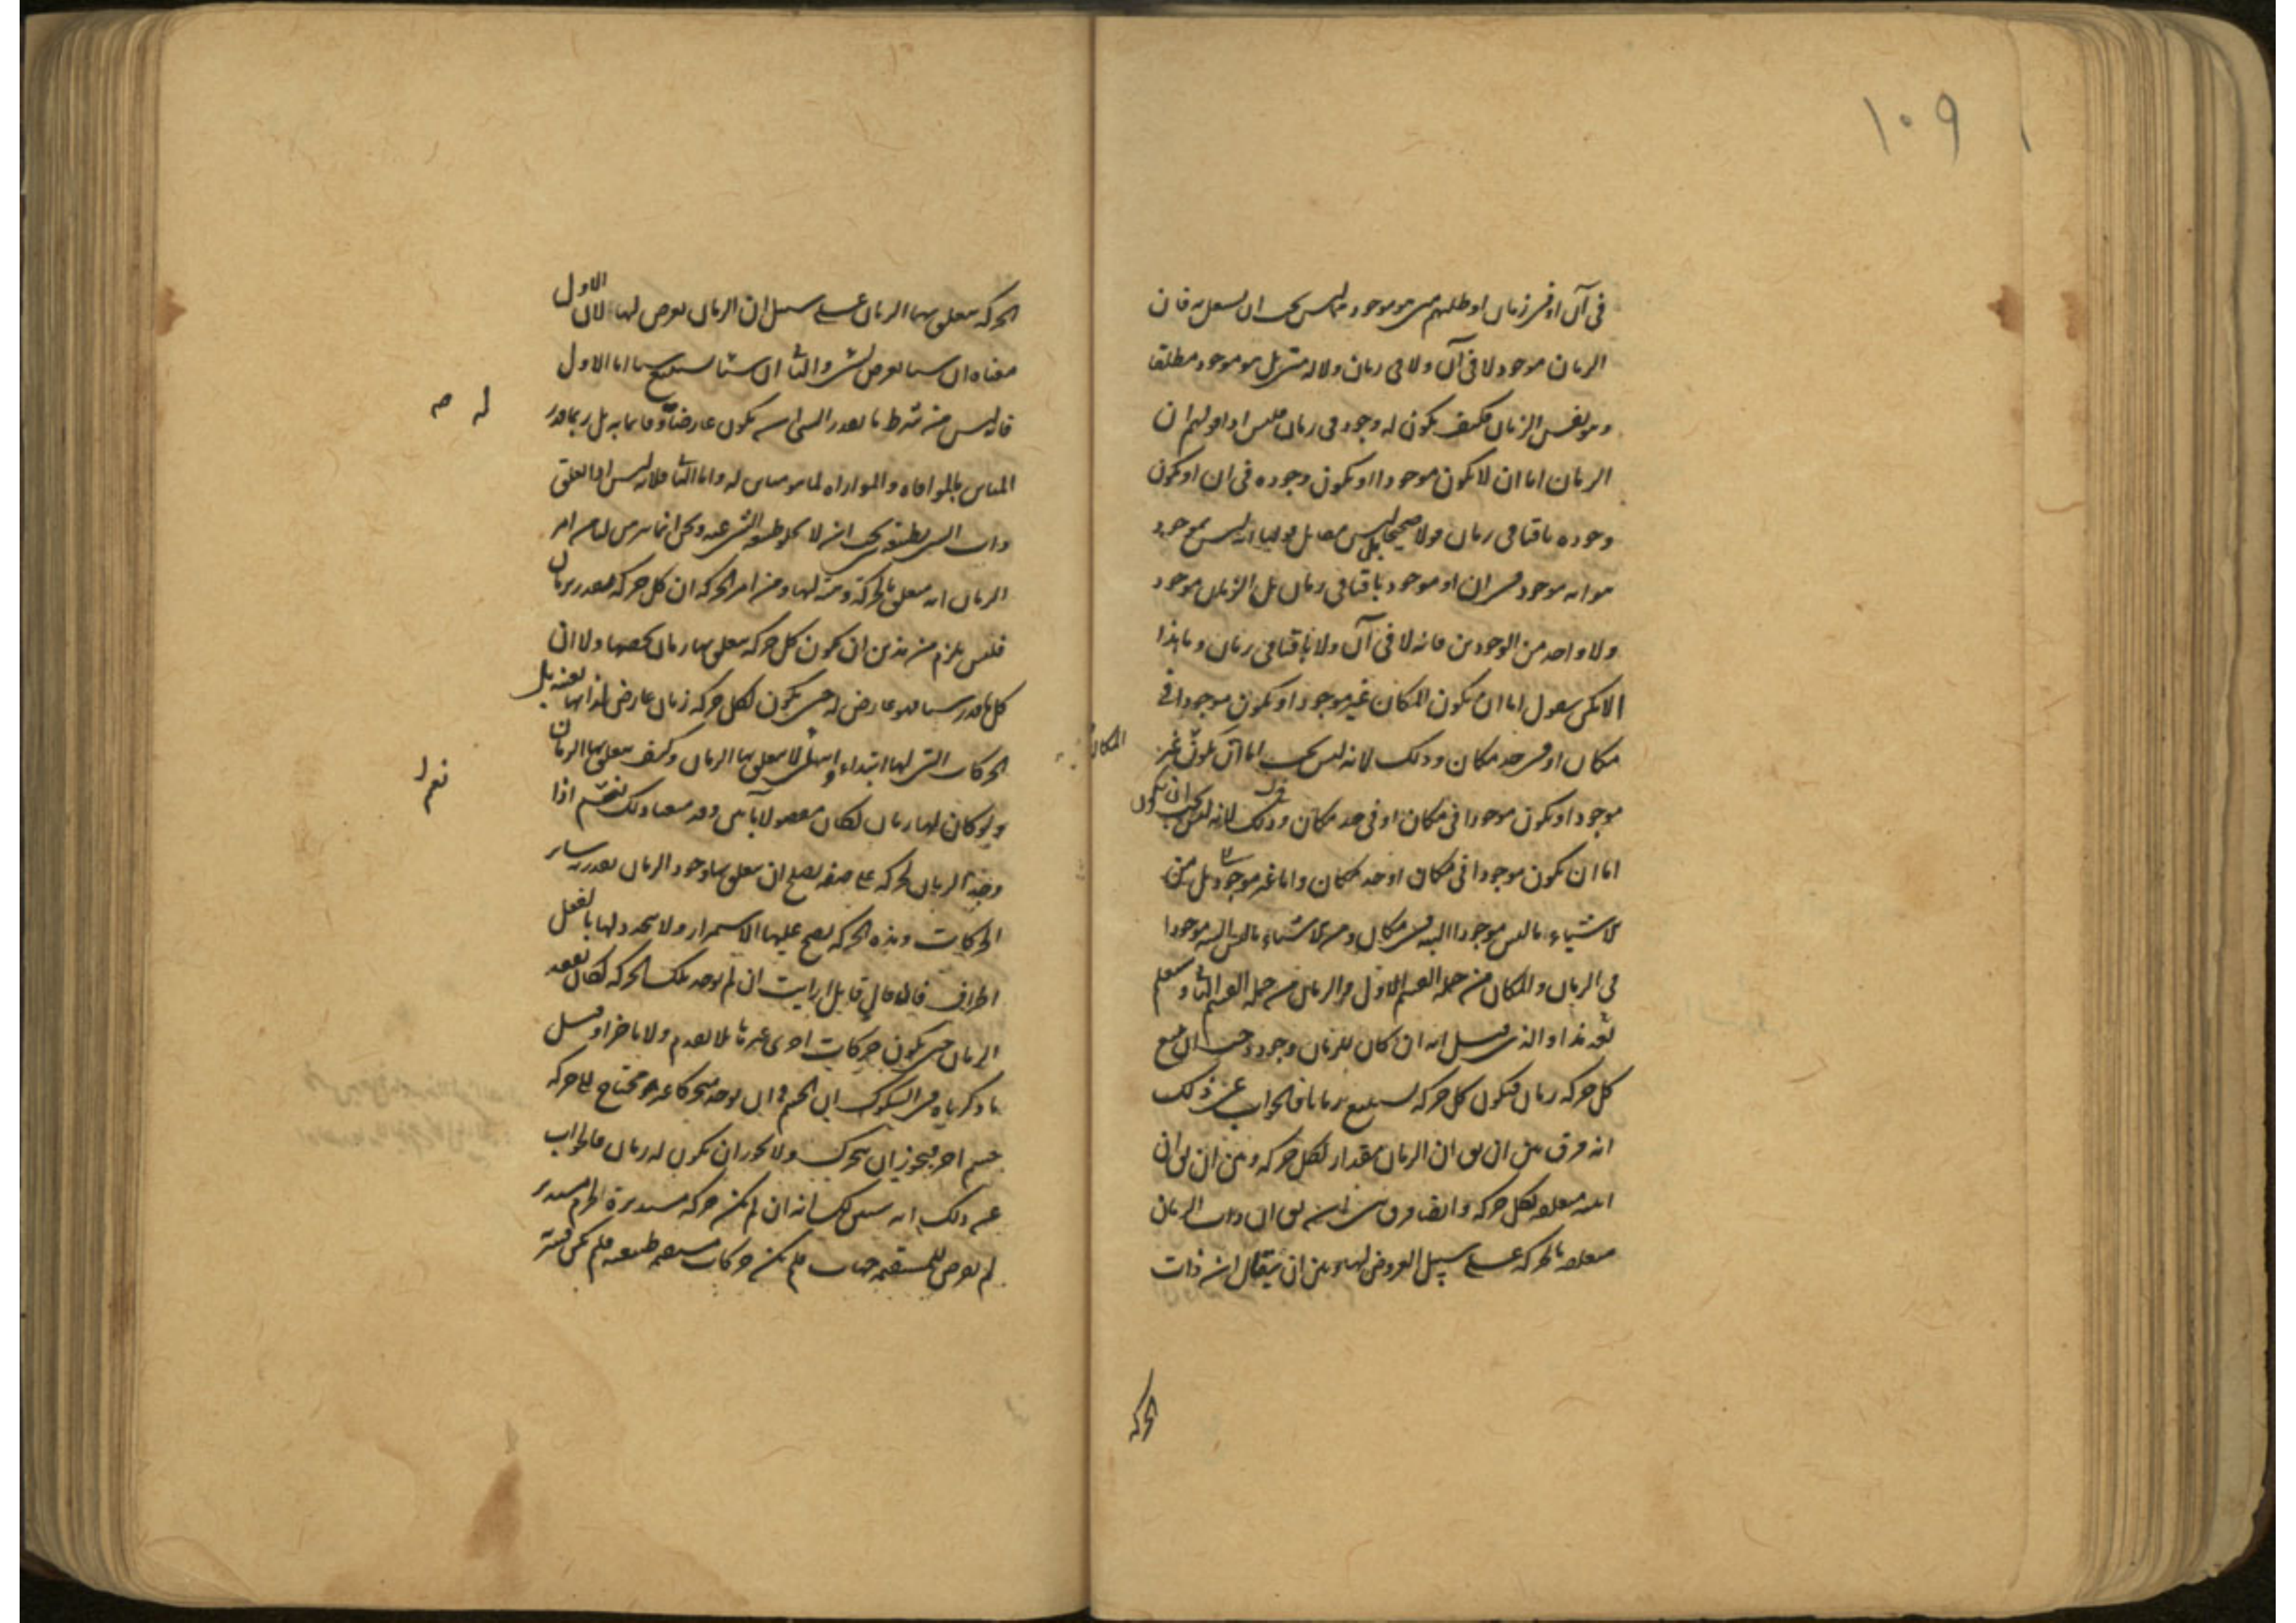 ١٠٩
فى آن او فى زمان او طلبهم متى هو موجود فليس يجب ان يشتغل به فان
الزمان موجود لا فى آن ولا فى زمان ولا له متى بل هو موجود مطلقا
وهو نفس الزمان فكيف يكون له وجود فى زمان فليس اذا قولهم ان
الزمان اما ان لا يكون موجودا او يكون وجوده فى ان او يكون
وجوده باقيا فى زمان قولا صحيحا بل ليس مقابل قولنا انه ليس بموجود
هو انه موجود فى ان او موجود باقيا فى زمان بل الزمان موجود
ولا واحد من الوجودين فانه لا فى آن ولا باقيا فى زمان وما هذا
الا كمن يقول اما ان يكون المكان غير موجود او يكون موجودا فى
مكان او فى حد مكان وذلك لانه ليس يجب اما ان يكون غير
المكان
موجود او يكون موجودا فى مكان او فى حد مكان وذلك لانه ليس يجب ان يكون
اما ان يكون موجودا فى مكان او حد مكان واما غير موجود بل من
الاشياء ما ليس موجودا البته فى مكان ومن الاشياء ما ليس البته موجودا
فى الزمان والمكان من جملة القسم الاول والزمان من جملة القسم الثانى وستعلم
بعد هذا والذى قيل انه ان كان للزمان وجود وجب ان يتبع
كل حركة زمان فيكون كل حركة تستتبع زمانا فالجواب عن ذلك
انه فرق بين ان يق ان الزمان مقدار لكل حركة وبين ان يق ان
انيته متعلقه بكل حركة وايضا فرق بين ان يق ان ذات الزمان
متعلقه بالحركة على سبيل العروض لها وبين ان يقال ان ذات
الحركه
الحركه يتعلق بها الزمان على سبيل ان الزمان يعرض لها لان الاول
معناه ان شيئا يعرض لشئ والثانى ان شيئا يستتبع شيئا اما الاول
فانه ليس من شرط ما يقدر الشئ ان يكون عارضا له وقائما به بل ربما قدر
له صه
المباين بالموافاه والموازاه لما هو مباين له واما الثانى فلانه ليس اذا تعلق
ذات الشئ بطبيعة يجب ان لا تخلو طبيعة الشئ عنه ونحن انما تبرهن لنا من امر
الزمان انه متعلق بالحركة وهيئة لها ومن امر الحركه ان كل حركة تقدر بزمان
فليس يلزم من هذين ان يكون كل حركه يتعلق بها زمان يخصها ولا ان
كل ما قدر شيئا فهو عارض له حتى يكون لكل حركه زمان عارض لها بعينه بل
الحركات التى لها ابتداء وانتهاء لا يتعلق بها الزمان وكيف يتعلق بها الزمان
ولو كان لها زمان لكان مفصولا بآنين وقد منعنا ذلك نعم اذا
نعم
وجد الزمان بحركه على صفه يصلح ان يتعلق بها وجود الزمان تقدر به سائر
الحركات وهذه الحركه يصح عليها الاستمرار ولا يتحدد لها بالفعل
اطراف فان قال قايل ارايت ان لم يوجد تلك الحركه لكان يفقد
الزمان حتى يكون حركات اخرى غيرها بلا تقدم ولا تاخر او قيل
ما ذكرناه فى الشكوك ان الجسم فى ان يوجد متحركا غير محتاج الى حركه
جسم اخر فيجوز ان يتحرك ولا يجوز ان يكون له زمان فالجواب
عن ذلك انه سنبين لك انه ان لم يكن حركه مستديرة لجرم مستدير
لم يعرض للمستقيمه جهات فلم يكن حركات مستقيمه طبيعيه فلم يكن قسريه